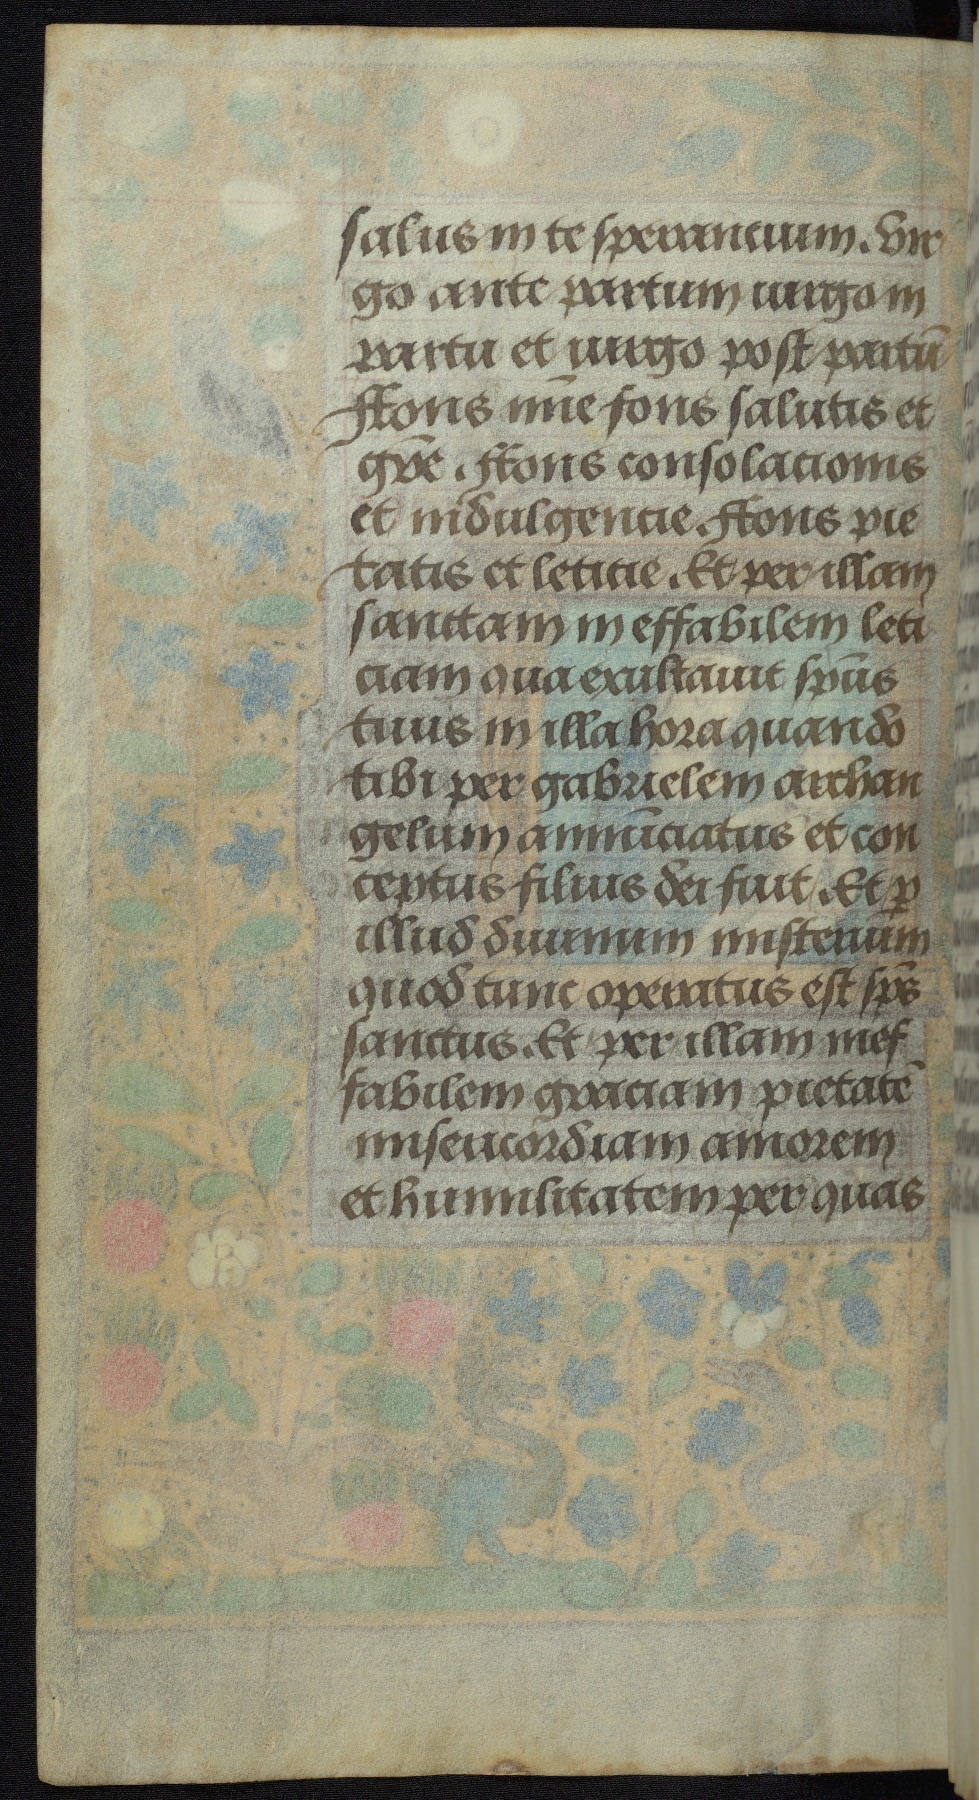 salus in te sperancium. Vir
go ante partum uirgo in
partu et uirgo post partū
ffons mīe fons salutis et
grē. ffons consolacionis
et indulgencie. ffons pie
tatis et leticie. Et per illam
sanctam in effabilem leti
ciam qua exultauit spūs
tuus in illa hora quando
tibi per gabrielem archan
gelum annūciatus et con
ceptus filius dei fuit. Et ꝑ
illud diuinum misterium
quod tunc operatus est spūs
sanctus. Et per illam inef
fabilem graciam pietatē
misericordiam amorem
et humilitatem per quas